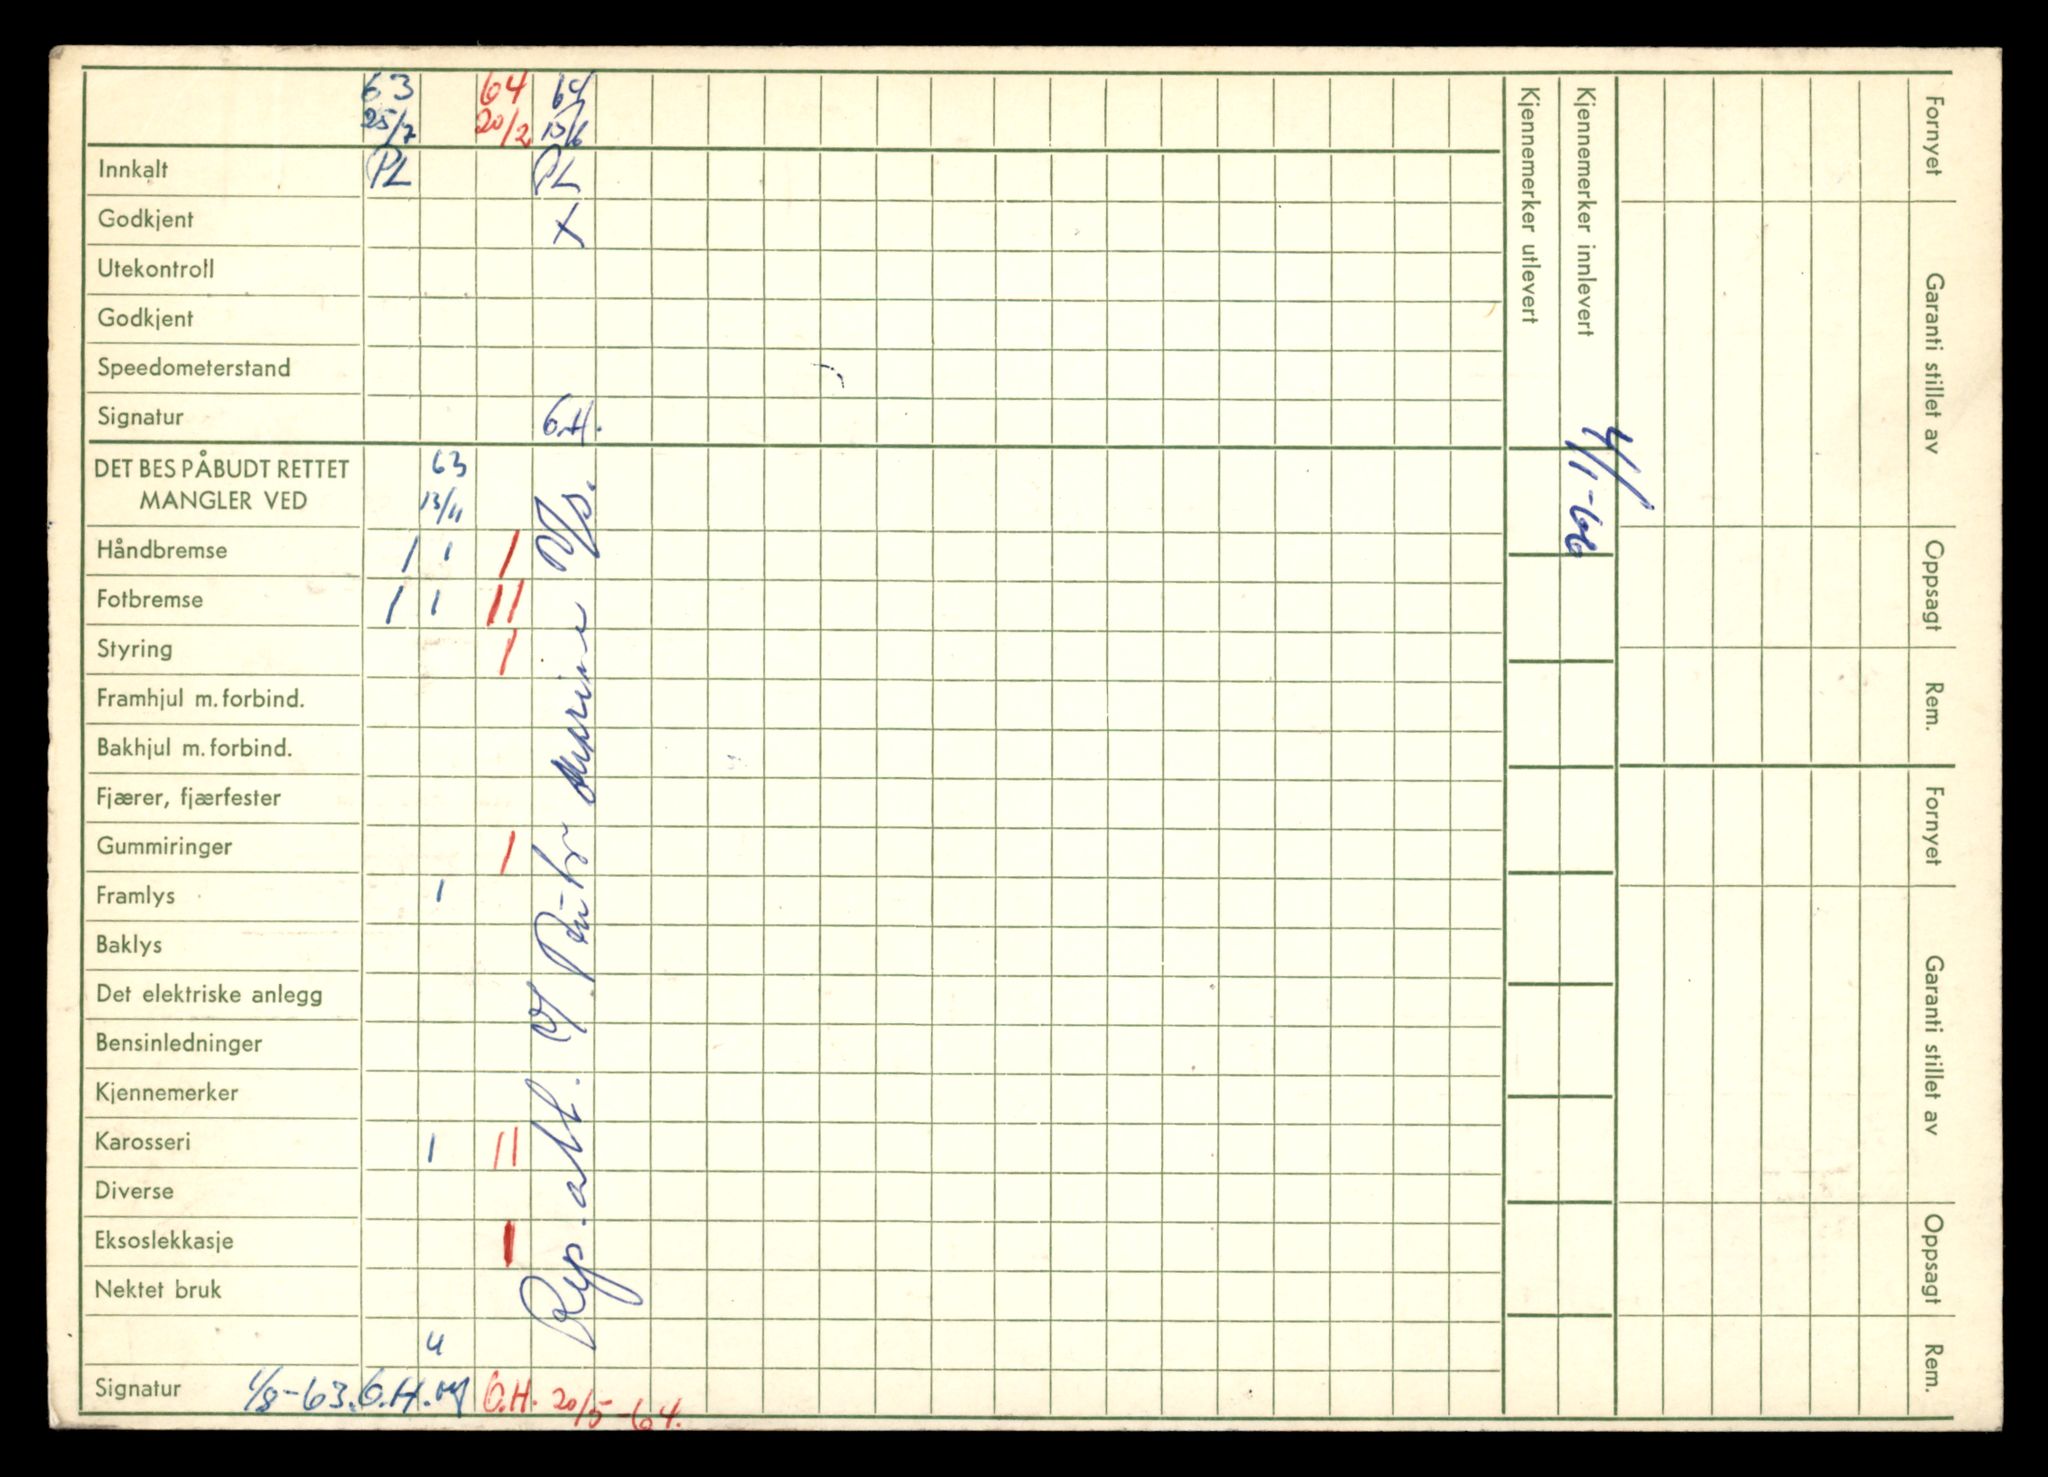 63 64 64
25/7 20/2 15/6
Innkalt PL PL
Godkjent X
Utekontroll
Godkjent
Speedometerstand
Signatur O.H.
DET BES PÅBUDT RETTET 63
MANGLER VED 13/11
Håndbremse / 1 /
Fotbremse / 1 //
Styring /
Framhjul m. forbind.
Bakhjul m. forbind.
Fjærer, fjærfester
Gummiringer /
Framlys 1
Baklys
Det elektriske anlegg
Bensinledninger
Kjennemerker
Karosseri 1 //
Diverse
Eksoslekkasje /
Nektet bruk
4
Signatur 1/8-63. O.H. O.H. 20/5-64.
Rep. att.
Kjennemerker utlevert
Kjennemerker innlevert
4/1-66
Fornyet
Garanti stillet av
Oppsagt
Rem.
Fornyet
Garanti stillet av
Oppsagt
Rem.